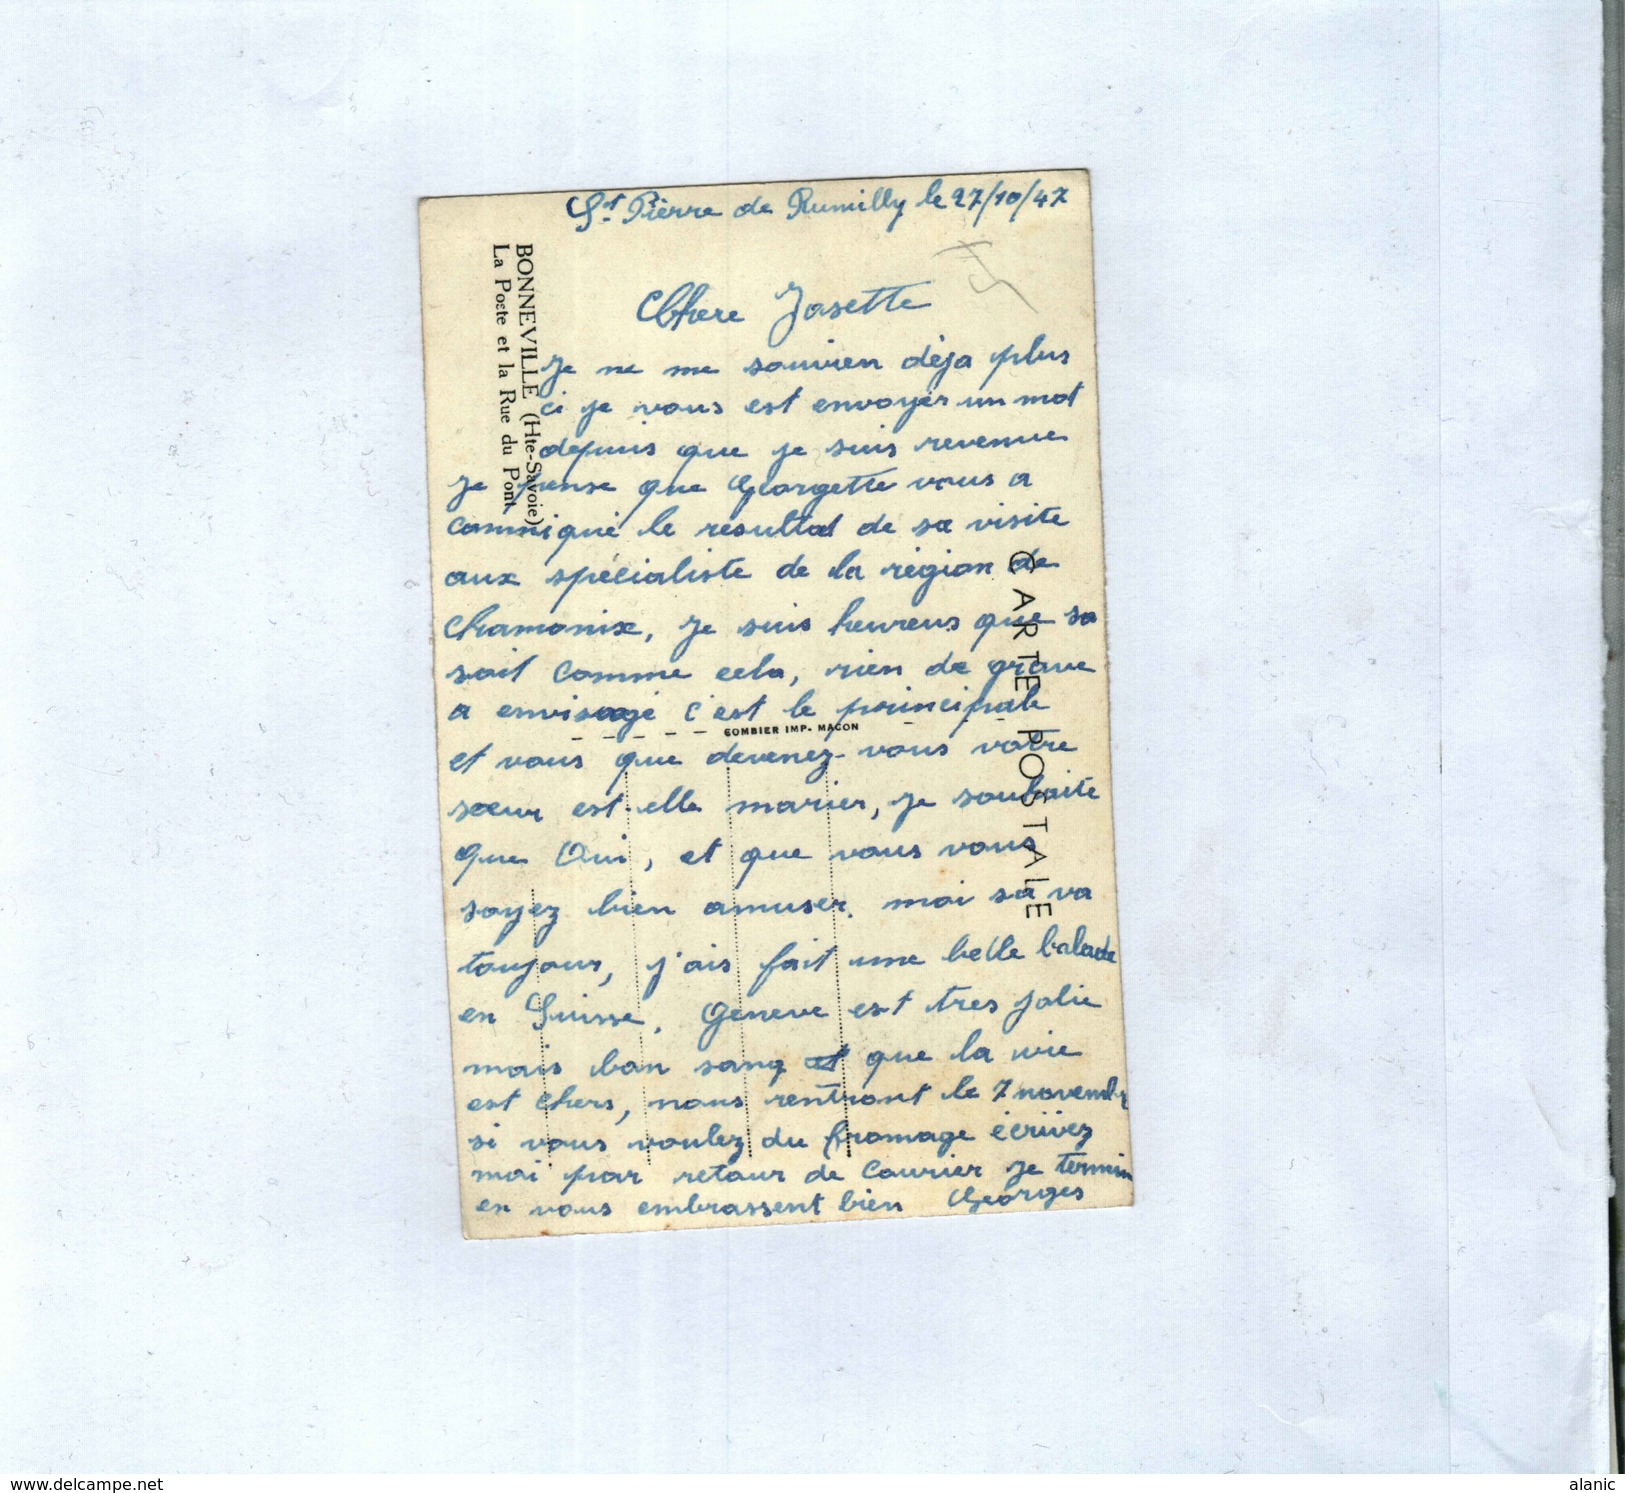 St Pièrre de Rumilly le 27/10/47
BONNEVILLE (Hte-Savoie)
La Poste et la Rue du Pont
Chere Josette
Je ne me souvien déja plus
ci je vous est envoyer un mot
depuis que je suis revenue
Je pense que Georgette vous a
comminiqué le resultat de sa visite
aux spécialiste de la région de
Chamonix, Je suis heureus que sa
soit comme cela, rien de grave
a envisagé c'est le principale
et vous que devenez-vous votre
sœur est-elle marier, je souhaite
que Oui, et que vous vous
soyez bien amuser. moi sa va
toujours, j'ais fait une belle balade
en Suisse. Geneve est tres jolie
mais bon sang que la vie
est chers, nous rentront le 7 novembr
si vous voulez du fromage écrivez
moi par retour de courier je termin
en vous embrassent bien Georges
CARTE POSTALE
COMBIER IMP. MACON
delcampe.net
alanic